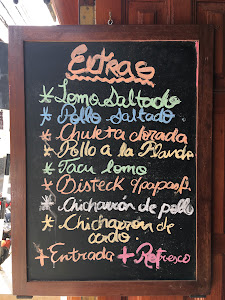 Extras
* Lomo Saltado
* Pollo Saltado
* Chuleta dorada
* Pollo a la Plancha
* Tacu lomo
* Bisteck c/papas f.
* Chicharrón de pollo
* Chicharrón de
cerdo.
+ Entrada + Refresco